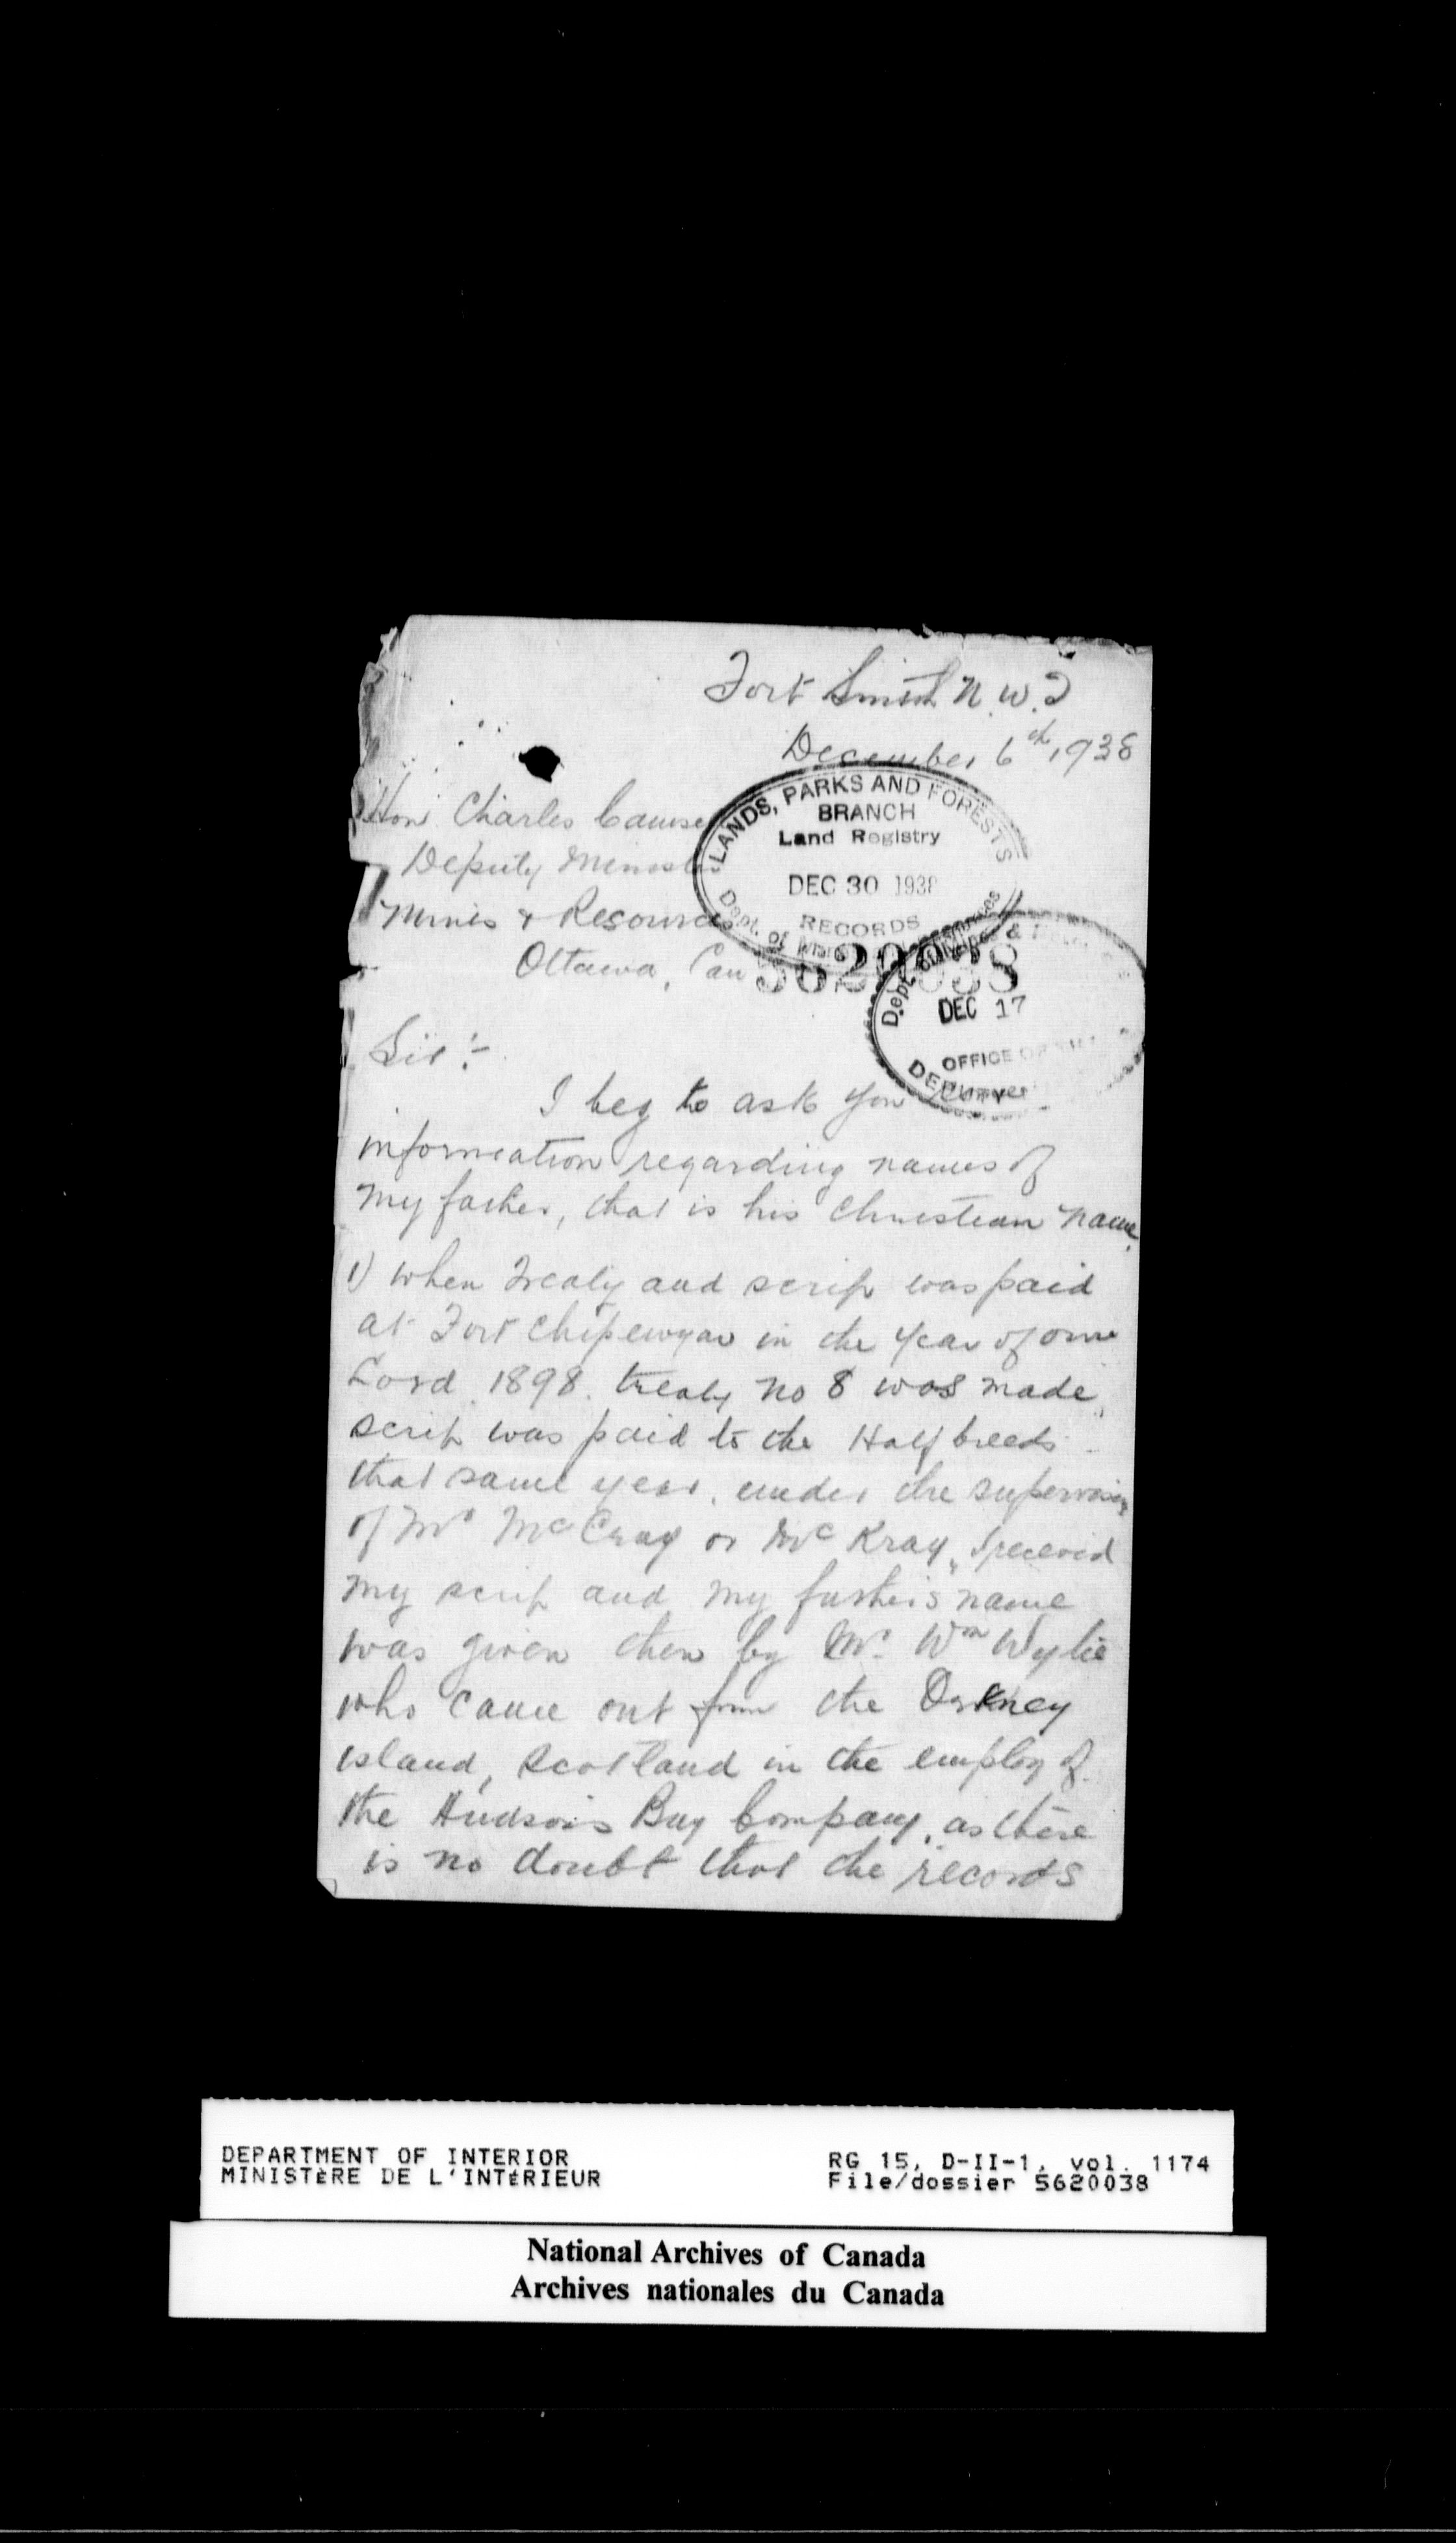 Fort Smith N.W.T
December 6th, 1938
Hon Charles Camsell
Deputy Minister
Mines & Resources
Ottawa, Can
LANDS, PARKS AND FORESTS
BRANCH
Land Registry
DEC 30 1938
RECORDS
Dept. of Mines
5620038
Dept. of Mines &
DEC 17
OFFICE OF
DEPUTY
Sir :-
I beg to ask you
information regarding names of
my father, that is his Christian name.
1) when Treaty and scrip was paid
at Fort Chipewyan in the year of our
Lord 1898. treaty no 8 was made,
scrip was paid to the Half breeds
that same year, under the supervising
of Mr McCray or McKray, I received
my scrip and my father's name
was given then by Mr. Wm Wylie
who came out from the Orkney
island, Scotland in the employ of
the Hudson's Bay Company, as there
is no doubt that the records
DEPARTMENT OF INTERIOR
MINISTÈRE DE L'INTÉRIEUR
RG 15, D-II-1, vol. 1174
File/dossier 5620038
National Archives of Canada
Archives nationales du Canada